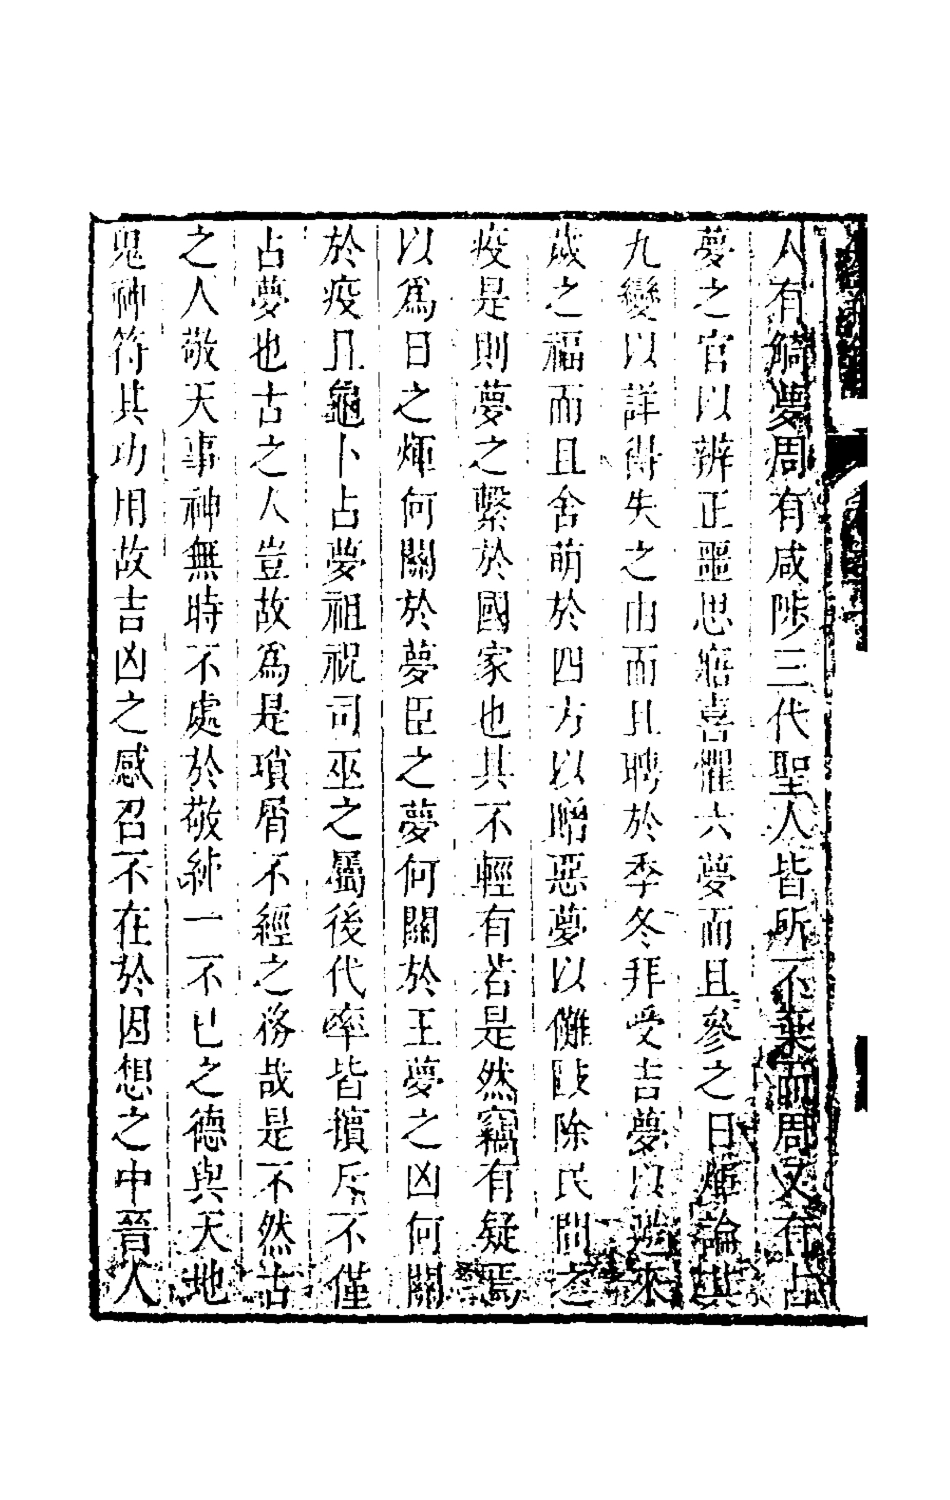 人有觭夢周有咸陟三代聖人皆所不棄而周又有占
夢之官以辨正噩思寤喜懼六夢而且參之日煇論其
九變以詳得失之由而且聘於季冬拜受吉夢以迓來
歲之福而且舍萌於四方以贈惡夢以儺敺除民間之
疫是則夢之繫於國家也其不輕有若是然竊有疑焉
以為日之煇何關於夢臣之夢何關於王夢之凶何關
於疫且龜卜占夢祖祝司巫之屬後代率皆擯斥不僅
占夢也古之人豈故為是瑣屑不經之務哉是不然古
之人敬天事神無時不處於敬純一不已之德與天地
鬼神符其功用故吉凶之感召不在於因想之中晉人